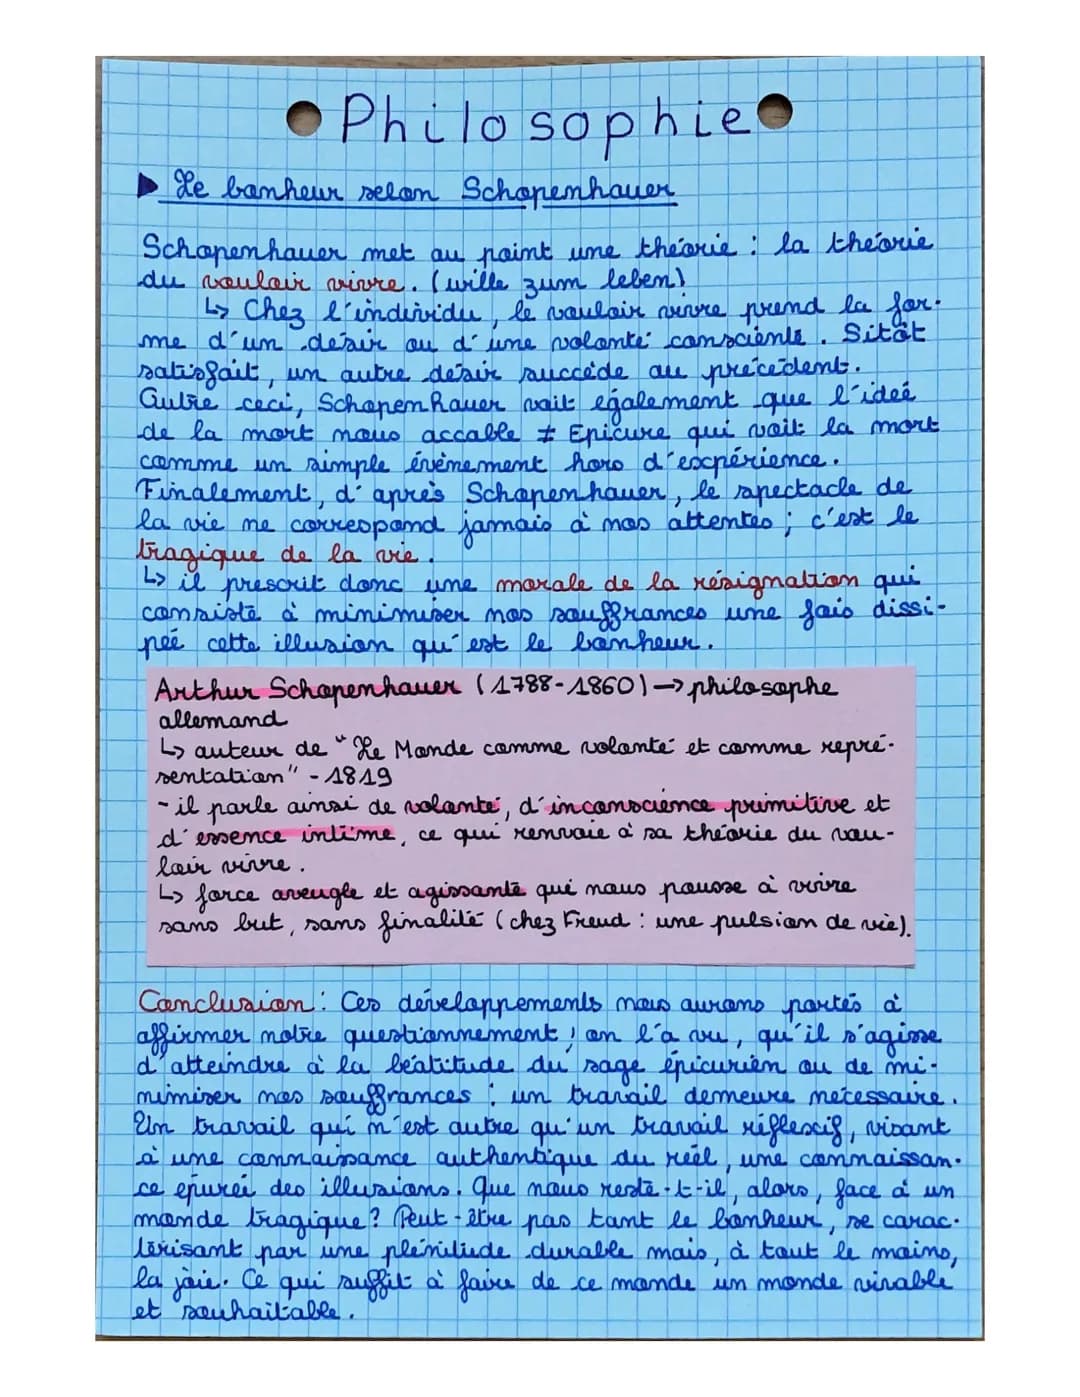 Philosophie
Le bonheur selon Schopenhauer
Schopenhauer met au point une théorie : la théorie
du vouloir vivre. (wille zum leben)
↳ Chez l'individu, le vouloir vivre prend la for-
me d'un désir ou d'une volonté consciente. Sitôt
satisfait, un autre désir succède au précédent.
Outre ceci, Schopenhauer voit également que l'idée
de la mort nous accable ≠ Epicure qui voit la mort
comme un simple évènement hors d'expérience.
Finalement, d'après Schopenhauer, le spectacle de
la vie ne correspond jamais à nos attentes ; c'est le
tragique de la vie.
↳ il prescrit donc une morale de la résignation qui
consiste à minimiser nos souffrances une fois dissi-
pée cette illusion qu'est le bonheur.
Arthur Schopenhauer (1788-1860) → philosophe
allemand
↳ auteur de "Le Monde comme volonté et comme repré-
sentation" - 1819
- il parle ainsi de volonté, d'inconscience primitive et
d'essence intime, ce qui renvoie à sa théorie du vou-
loir vivre.
↳ force aveugle et agissante qui nous pousse à vivre
sans but, sans finalité (chez Freud : une pulsion de vie).
Conclusion : Ces développements nous aurons portés à
affirmer notre questionnement ; on l'a vu, qu'il s'agisse
d'atteindre à la béatitude du sage épicurien ou de mi-
nimiser nos souffrances : un travail demeure nécessaire.
Un travail qui n'est autre qu'un travail réflexif, visant
à une connaissance authentique du réel, une connaissan-
ce épurée des illusions. Que nous reste-t-il, alors, face à un
monde tragique? Peut-être pas tant le bonheur, se carac-
térisant par une plénitude durable mais, à tout le moins,
la joie. Ce qui suffit à faire de ce monde un monde vivable
et souhaitable.